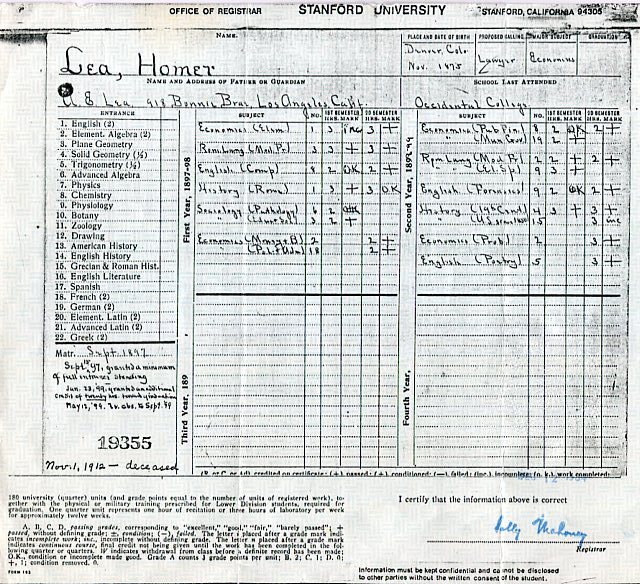 OFFICE OF REGISTRAR STANFORD UNIVERSITY STANFORD, CALIFORNIA 94305
NAME. PLACE AND DATE OF BIRTH PROPOSED CALLING MAJOR SUBJECT GRADUATION
Lea, Homer Denver, Colo Nov. 1875 Lawyer Economics
NAME AND ADDRESS OF FATHER OR GUARDIAN SCHOOL LAST ATTENDED
A E Lea, 918 Bonnie Brae, Los Angeles, Calif. Occidental College
ENTRANCE
1. English (2)
2. Element. Algebra (2)
3. Plane Geometry
4. Solid Geometry (½)
5. Trigonometry (½)
6. Advanced Algebra
7. Physics
8. Chemistry
9. Physiology
10. Botany
11. Zoology
12. Drawing
13. American History
14. English History
15. Grecian & Roman Hist.
16. English Literature
17. Spanish
18. French (2)
19. German (2)
20. Element. Latin (2)
21. Advanced Latin (2)
22. Greek (2)
Matr. Sept 1897
Sept 97, granted a minimum
of full entrance standing
Jan. 23, '99, granted additional
credit of twenty hrs. toward graduation
May 12, '99. Lv. abs. to Sept. 99
19355
Nov. 1, 1912 — deceased
First Year, 1897-98
SUBJECT NO. 1ST SEMESTER HRS. MARK 2D SEMESTER HRS. MARK
Economics (Elem) 1 3 inc 3 +
Rom. Lang (Mod. Fr.) 3 + 3 +
English (Comp) 8 2 OK 2 +
History (Rome) 1 3 + 3 OK
Sociology (Pathology) 6 2
3 2 +
Economics (Money & B) 2 2 +
18 2 +
Third Year, 189
Second Year, 1898-99
SUBJECT NO. 1ST SEMESTER HRS. MARK 2D SEMESTER HRS. MARK
Economics (Pub Fin) 8 2 OK 2 +
(Mun Gov) 19 2 +
Rom Lang (Mod Fr) 2 2 + 2 +
" " (El. Sp) 9 3 +
English 9 2 OK 2 +
History 4 3 + 3 +
15 3 inc
Economics (Prob) 2 3 +
English (Poetry) 5 3 +
Fourth Year,
(B or C, or 4d) credited on certificate: (+) passed: (±) conditioned: (—) failed: (inc.) incomplete: (o. k.) work completed:
180 university (quarter) units (and grade points equal to the number of units of registered work), to-
gether with the physical or military training prescribed for Lower Division students, required for
graduation. One quarter unit represents one hour of recitation or three hours of laboratory per week
for approximately twelve weeks.
A, B, C, D, passing grades, corresponding to "excellent," "good," "fair," "barely passed"; +
passed, without defining grade; ±, condition; (—), failed. The letter i placed after a grade mark indi-
cates incomplete work; inc, incomplete without defining grade. The letter n placed after a grade mark
indicates continuous course, final credit not being given until the work has been completed in the fol-
lowing quarter or quarters. W indicates withdrawal from class before a definite record has been made;
O.K., condition or incomplete made good. Grade A counts 3 grade points per unit; B, 2; C, 1; D, 0;
+, 1; condition removed, 0.
FORM 102
I certify that the information above is correct
Sally Mahoney
Registrar
Information must be kept confidential and not be disclosed
to other parties without the written consent of the student.